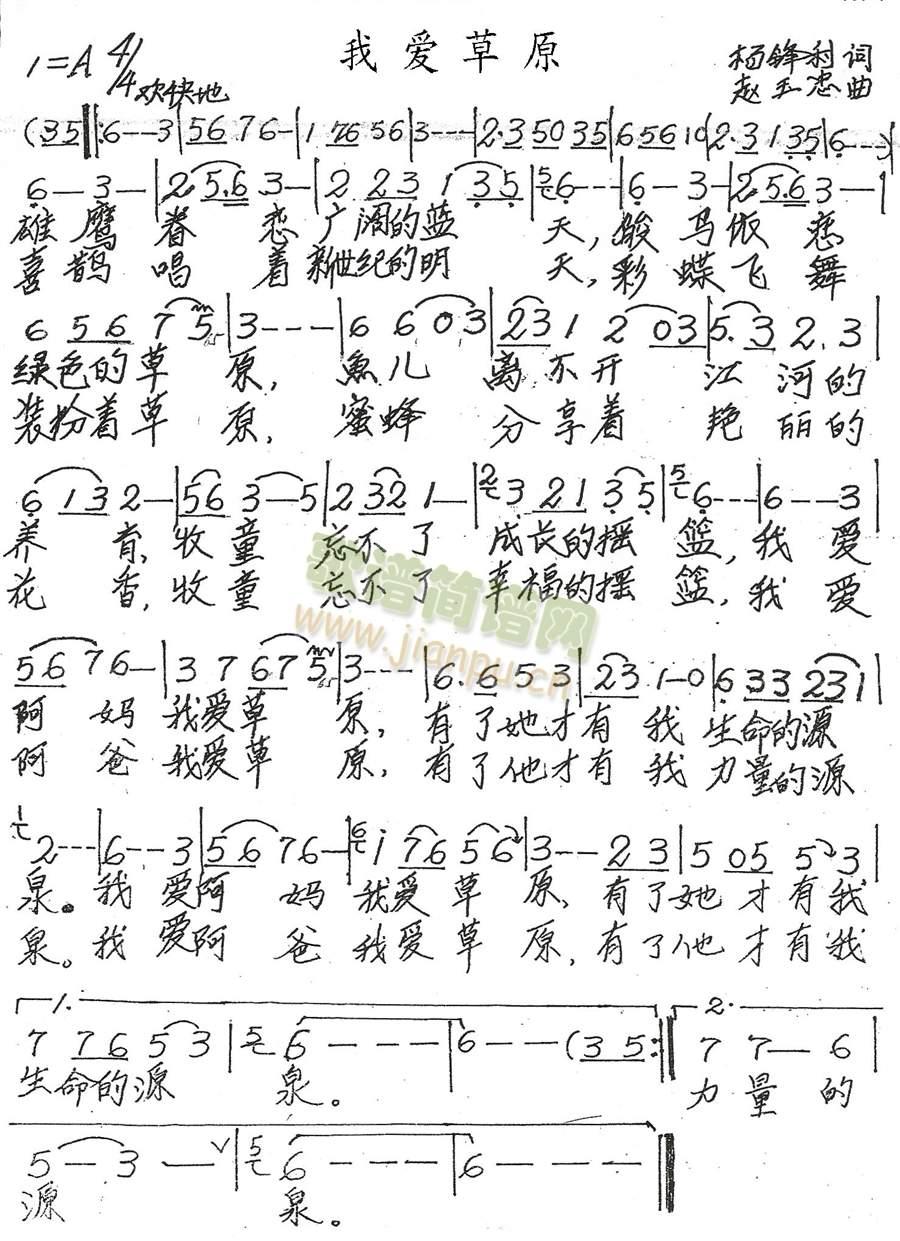 我爱草原
1=A 4/4 欢快地
杨锋利词
赵玉忠曲
(35‖:6--3|56 76-|1 76 56|3---|2·3 50 35|6 56 10|2·3 1 35|6---)
6-3-|2 5·6 3-|2 23 1 35|6---|6-3-|2·56 3-|
雄鹰眷恋广阔的蓝天,骏马依恋
喜鹊唱着新世纪的明天,彩蝶飞舞
6 56 7 5|3---|6 6 03|23 1 2 03|5·3 2·3|
绿色的草原,鱼儿离不开江河的
装扮着草原,蜜蜂分享着艳丽的
6 13 2-|56 3-5|2 32 1-|3 21 35|6---|6--3|
养育,牧童忘不了成长的摇篮,我爱
花香,牧童忘不了幸福的摇篮,我爱
歌谱简谱网
www.jianpu.cn
56 76-|3 7 67 5|3---|6·6 5 3|23 1-0|6 33 231|
阿妈我爱草原,有了她才有我生命的源
阿爸我爱草原,有了他才有我力量的源
2---|6--3|56 76-|i 76 56|3--23|5 05 5 3|
泉。我爱阿妈我爱草原,有了她才有我
泉。我爱阿爸我爱草原,有了他才有我
1. 2.
7 76 5 3|6---|6--(35:‖7 7-6
生命的源泉。力量的
5-3-|6---|6---‖
源泉。